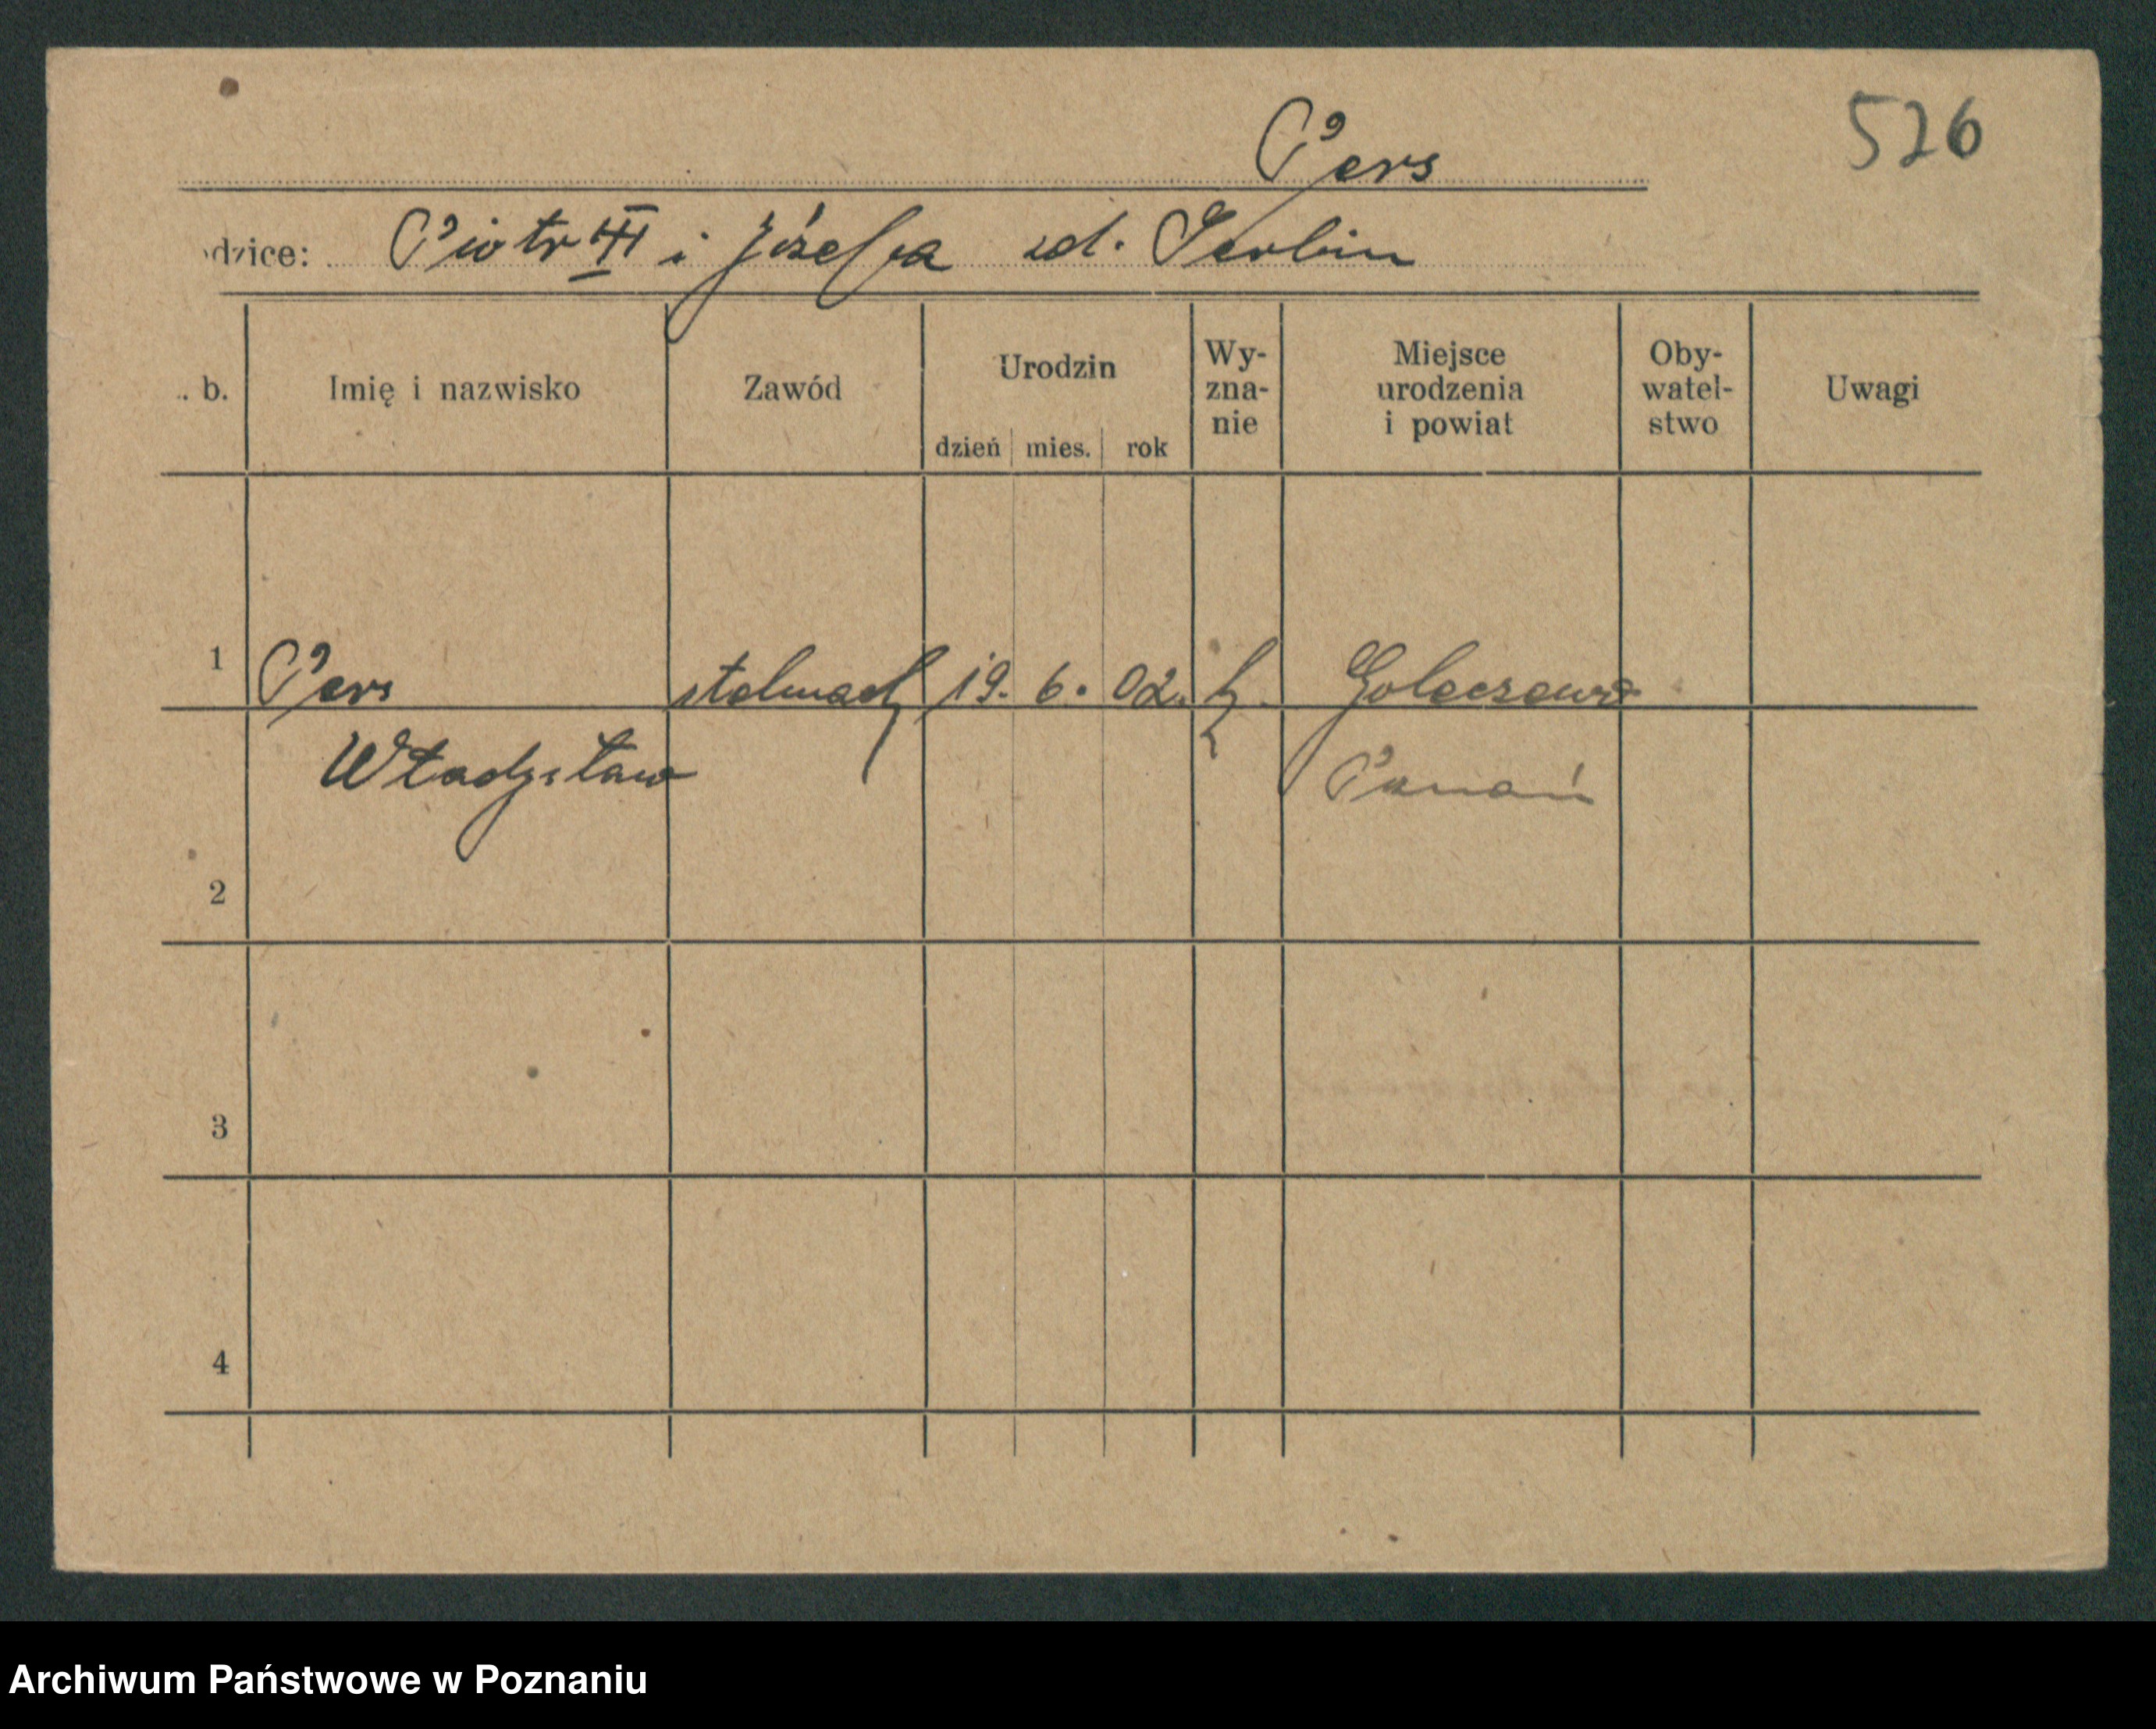 526
Pers
odzice: Piotr III i Józefa zd. Serbin
. b. Imię i nazwisko Zawód Urodzin dzień mies. rok Wy-zna-nie Miejsce urodzenia i powiat Oby-watel-stwo Uwagi
1 Pers stelmach 19. 6. 02. k. Golęczewo
Władysław Poznań
2
3
4
Archiwum Państwowe w Poznaniu